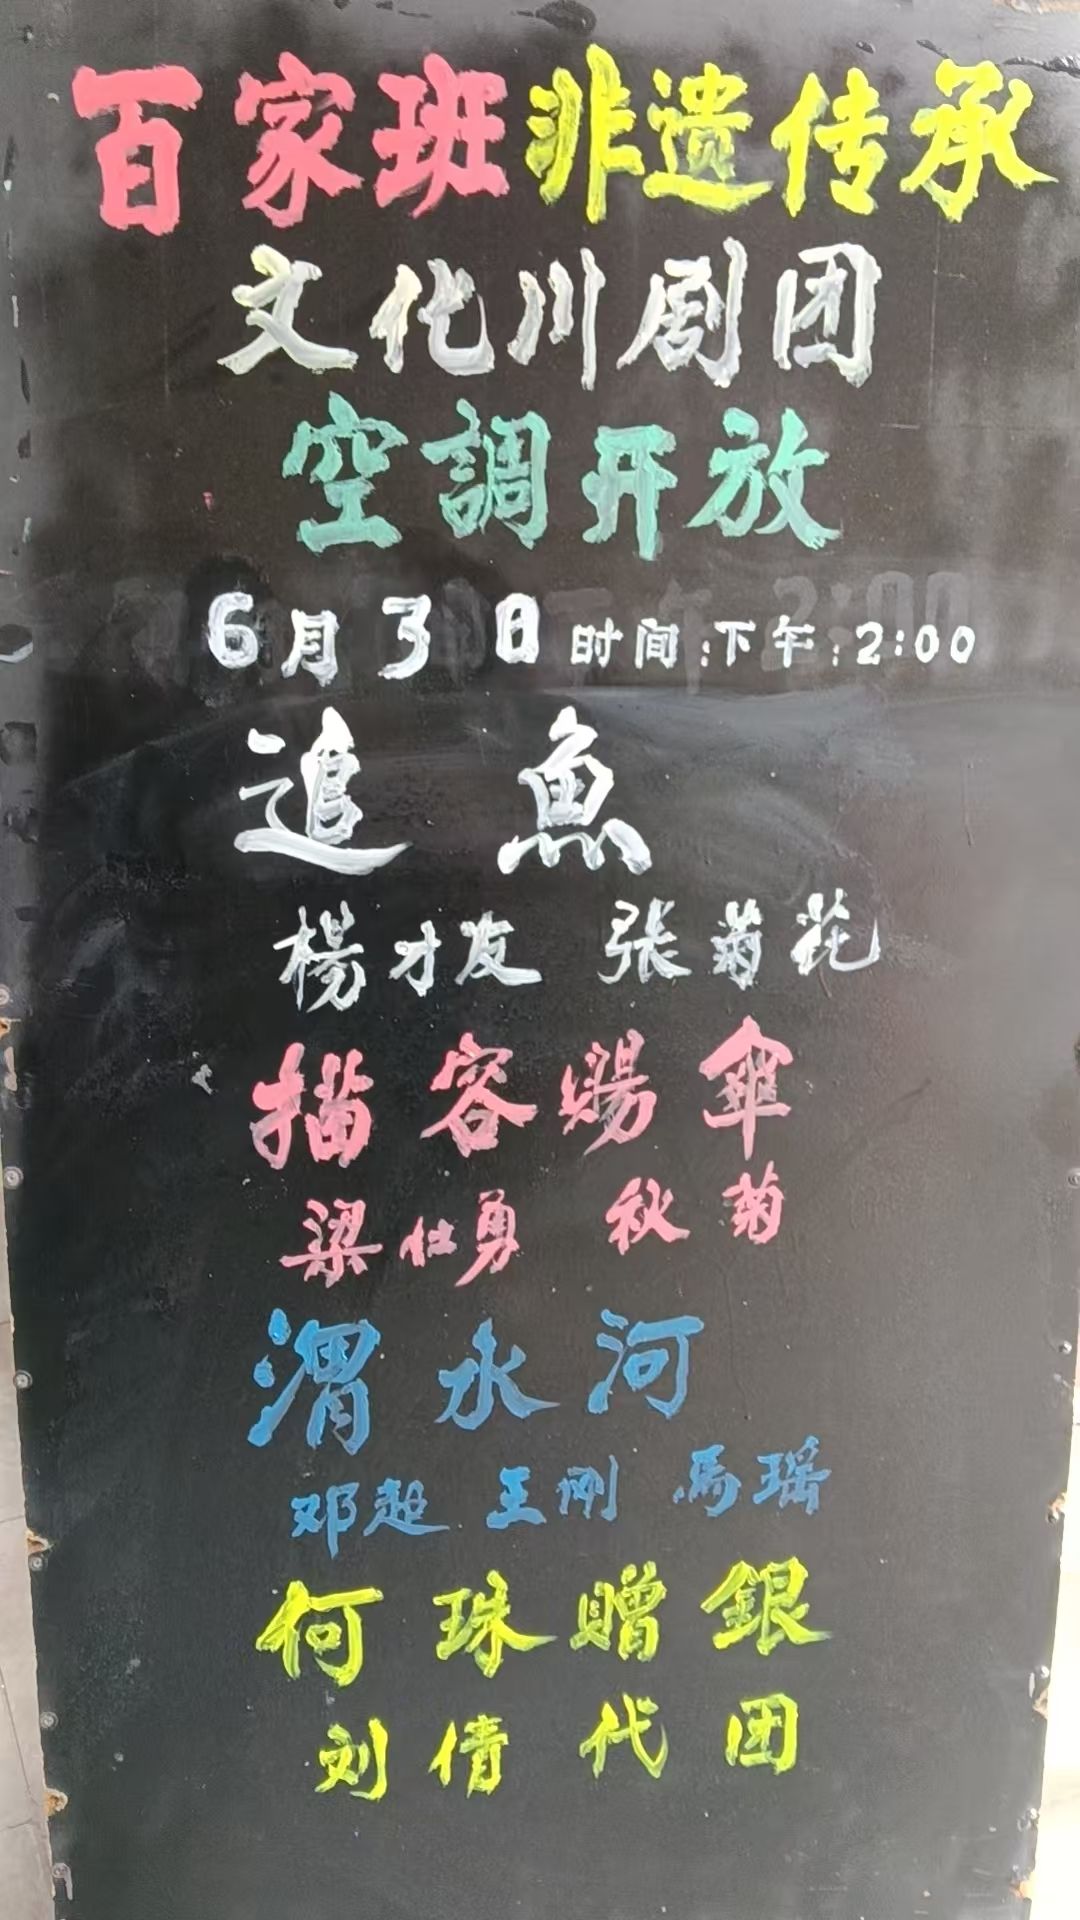 百家班非遗传承
文化川剧团
空調开放
6月3日时间:下午:2:00
追魚
楊才友 张菊花
描容赐傘
梁仕勇 秋菊
渭水河
邓超 王刚 马瑶
何珠赠銀
刘倩 代团